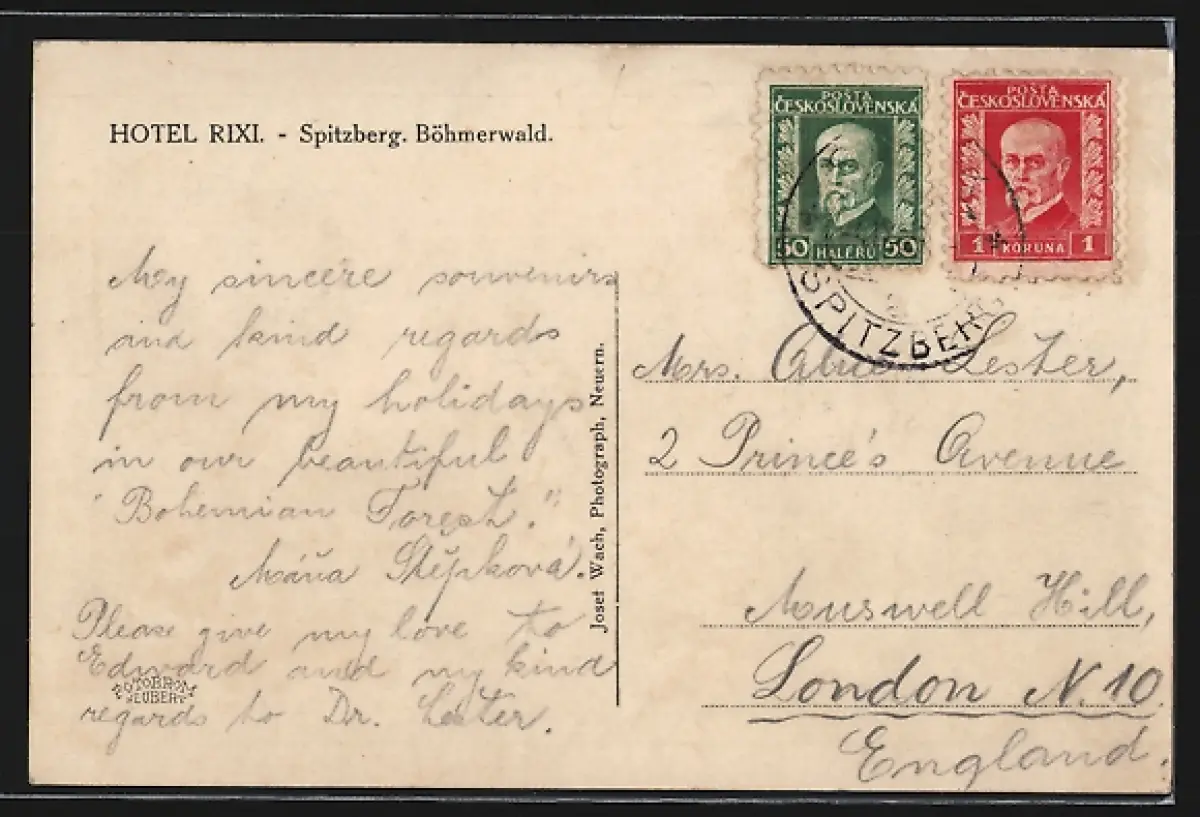 HOTEL RIXI. - Spitzberg. Böhmerwald.
POSTA
ČESKOSLOVENSKÁ
50 HALÉŘŮ 50
POSTA
ČESKOSLOVENSKÁ
1 KORUNA 1
SPITZBERG
My sincere souvenirs
and kind regards
from my holidays
in our beautiful
"Bohemian Forest."
Máňa Štěpková.
Please give my love to
Edward and my kind
regards to Dr. Lester.
FOTOBROM
NEUBERT
Josef Wach, Photograph, Neuern.
Mrs. Alice Lester,
2 Prince's Avenue
Muswell Hill,
London N. 10.
England.